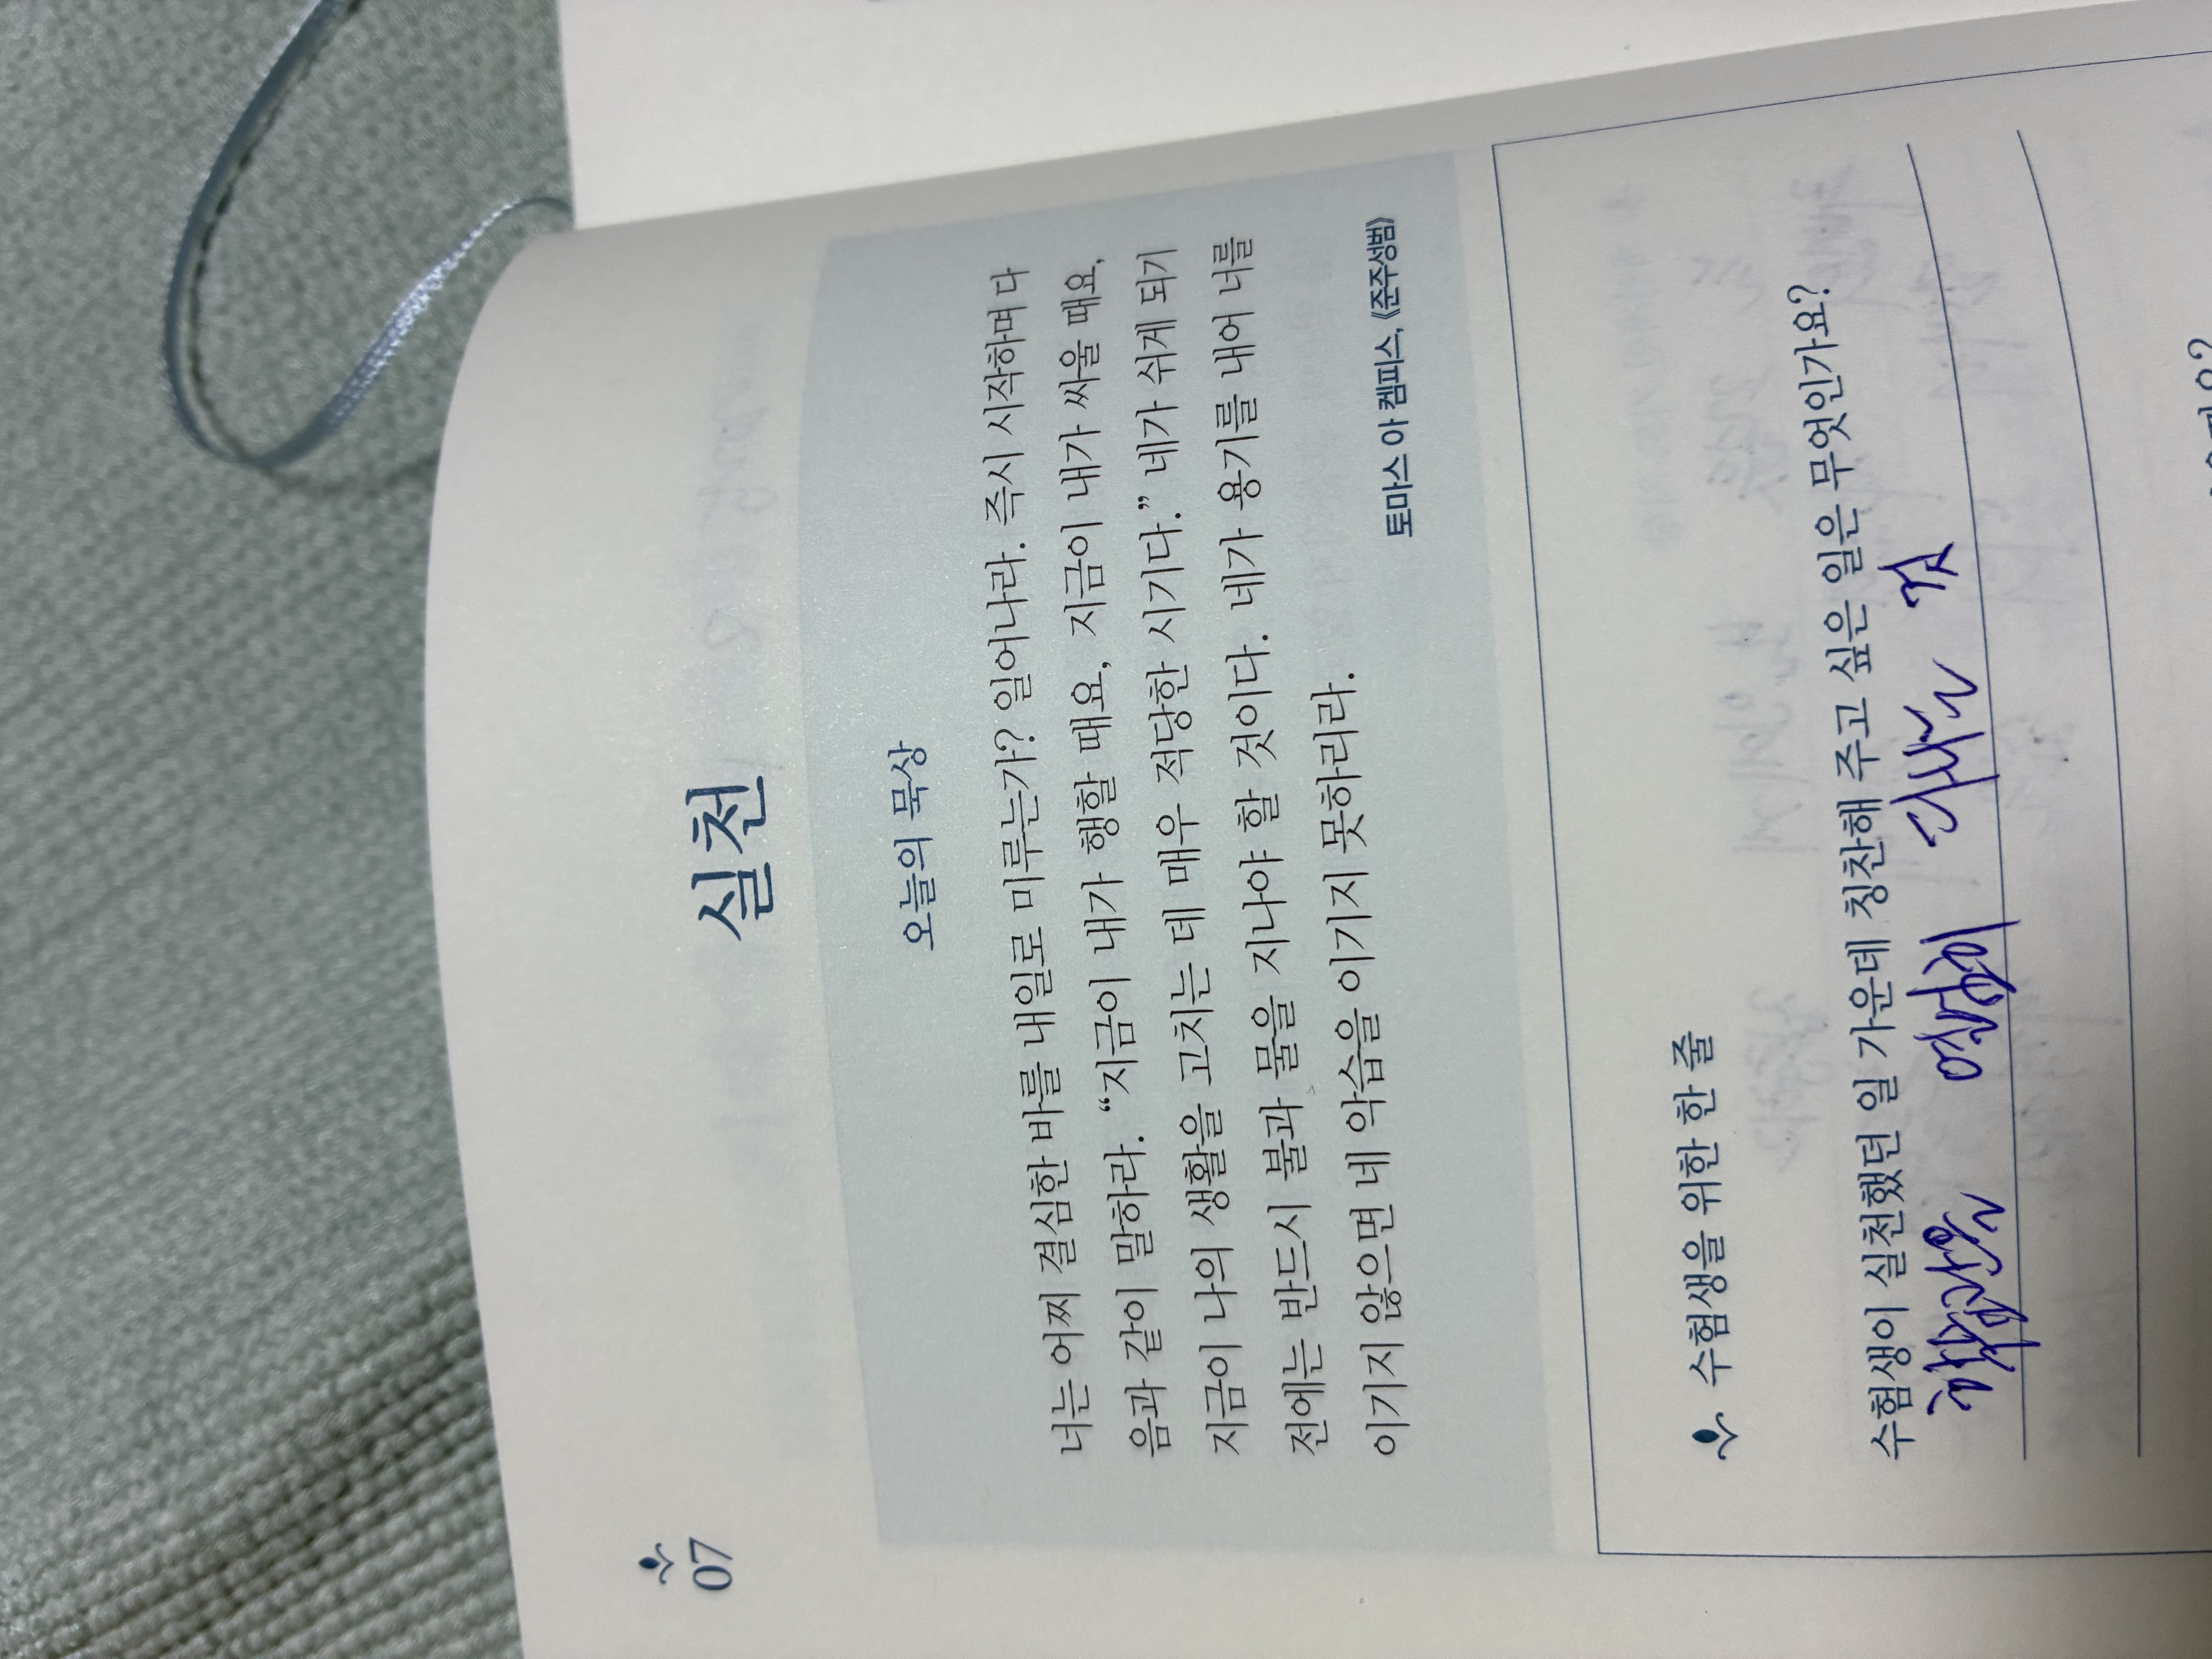 07
실천
오늘의 묵상
너는 어찌 결심한 바를 내일로 미루는가? 일어나라. 즉시 시작하며 다
음과 같이 말하라. “지금이 내가 행할 때요, 지금이 내가 싸울 때요,
지금이 나의 생활을 고치는 데 매우 적당한 시기다.” 네가 쉬게 되기
전에는 반드시 불과 물을 지나야 할 것이다. 네가 용기를 내어 너를
이기지 않으면 네 악습을 이기지 못하리라.
토마스 아 켐피스, 《준주성범》
수험생을 위한 한 줄
수험생이 실천했던 일 가운데 칭찬해 주고 싶은 일은 무엇인가요?
열심히 다니는 것